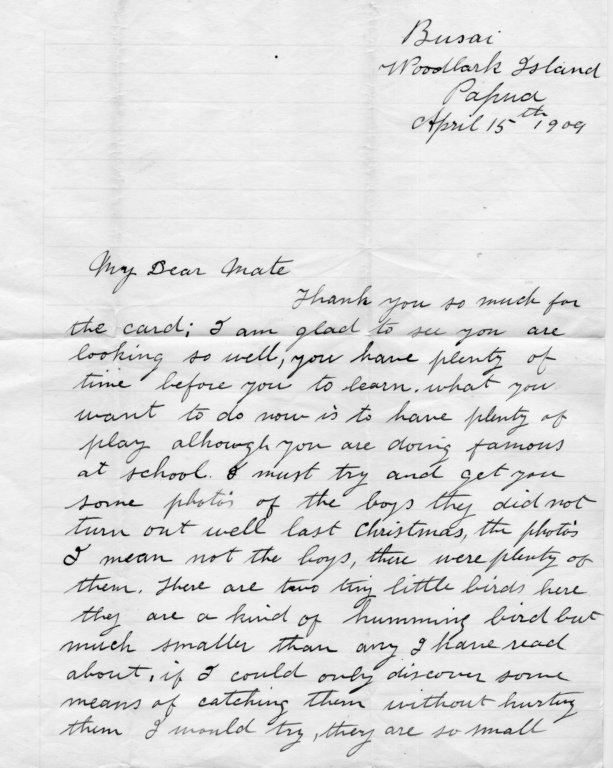 Busai
Woodlark Island
Papua
April 15th 1909
My Dear Mate
Thank you so much for
the card; I am glad to see you are
looking so well, you have plenty of
time before you to learn. what you
want to do now is to have plenty of
play alhough you are doing famous
at school. I must try and get you
some photo's of the boys they did not
turn out well last Christmas, the photo's
I mean not the boys, there were plenty of
them. There are two tiny little birds here
they are a kind of humming bird but
much smaller than any I have read
about, if I could only discover some
means of catching them without hurting
them I would try, they are so small